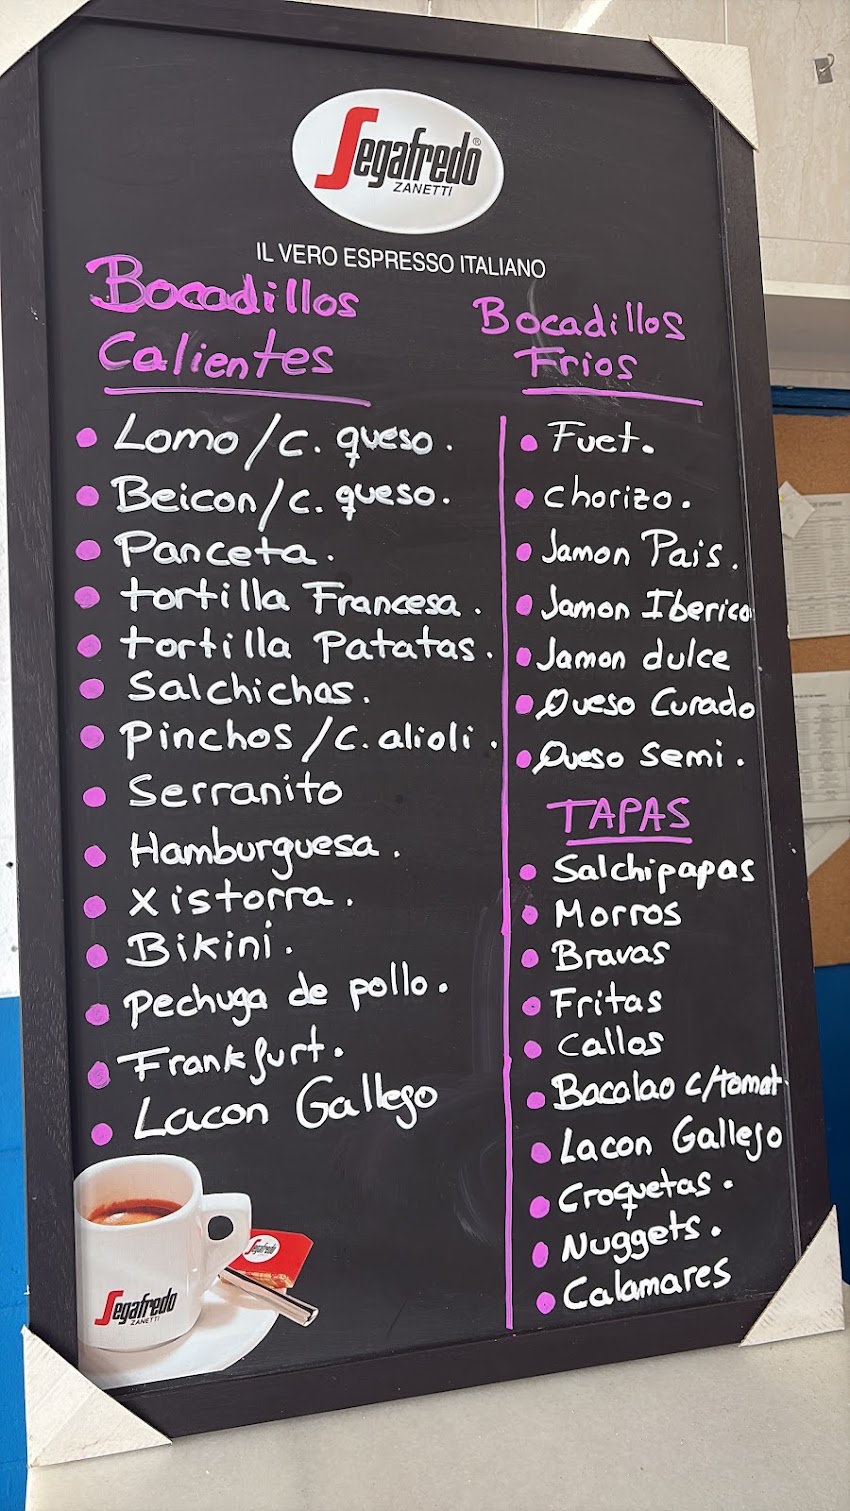 Segafredo®
ZANETTI
IL VERO ESPRESSO ITALIANO
Bocadillos
Calientes
Lomo/c. queso.
Beicon/c. queso.
Panceta.
tortilla Francesa.
tortilla Patatas.
Salchichas.
Pinchos/c. alioli.
Serranito
Hamburguesa.
Xistorra.
Bikini.
Pechuga de pollo.
Frankfurt.
Lacon Gallego
Bocadillos
Frios
Fuet.
Chorizo.
Jamon Pais.
Jamon Iberico
Jamon dulce
Queso Curado
Queso Semi.
TAPAS
Salchipapas
Morros
Bravas
Fritas
Callos
Bacalao c/tomat.
Lacon Gallego
Croquetas.
Nuggets.
Calamares
Segafredo
ZANETTI
Segafredo